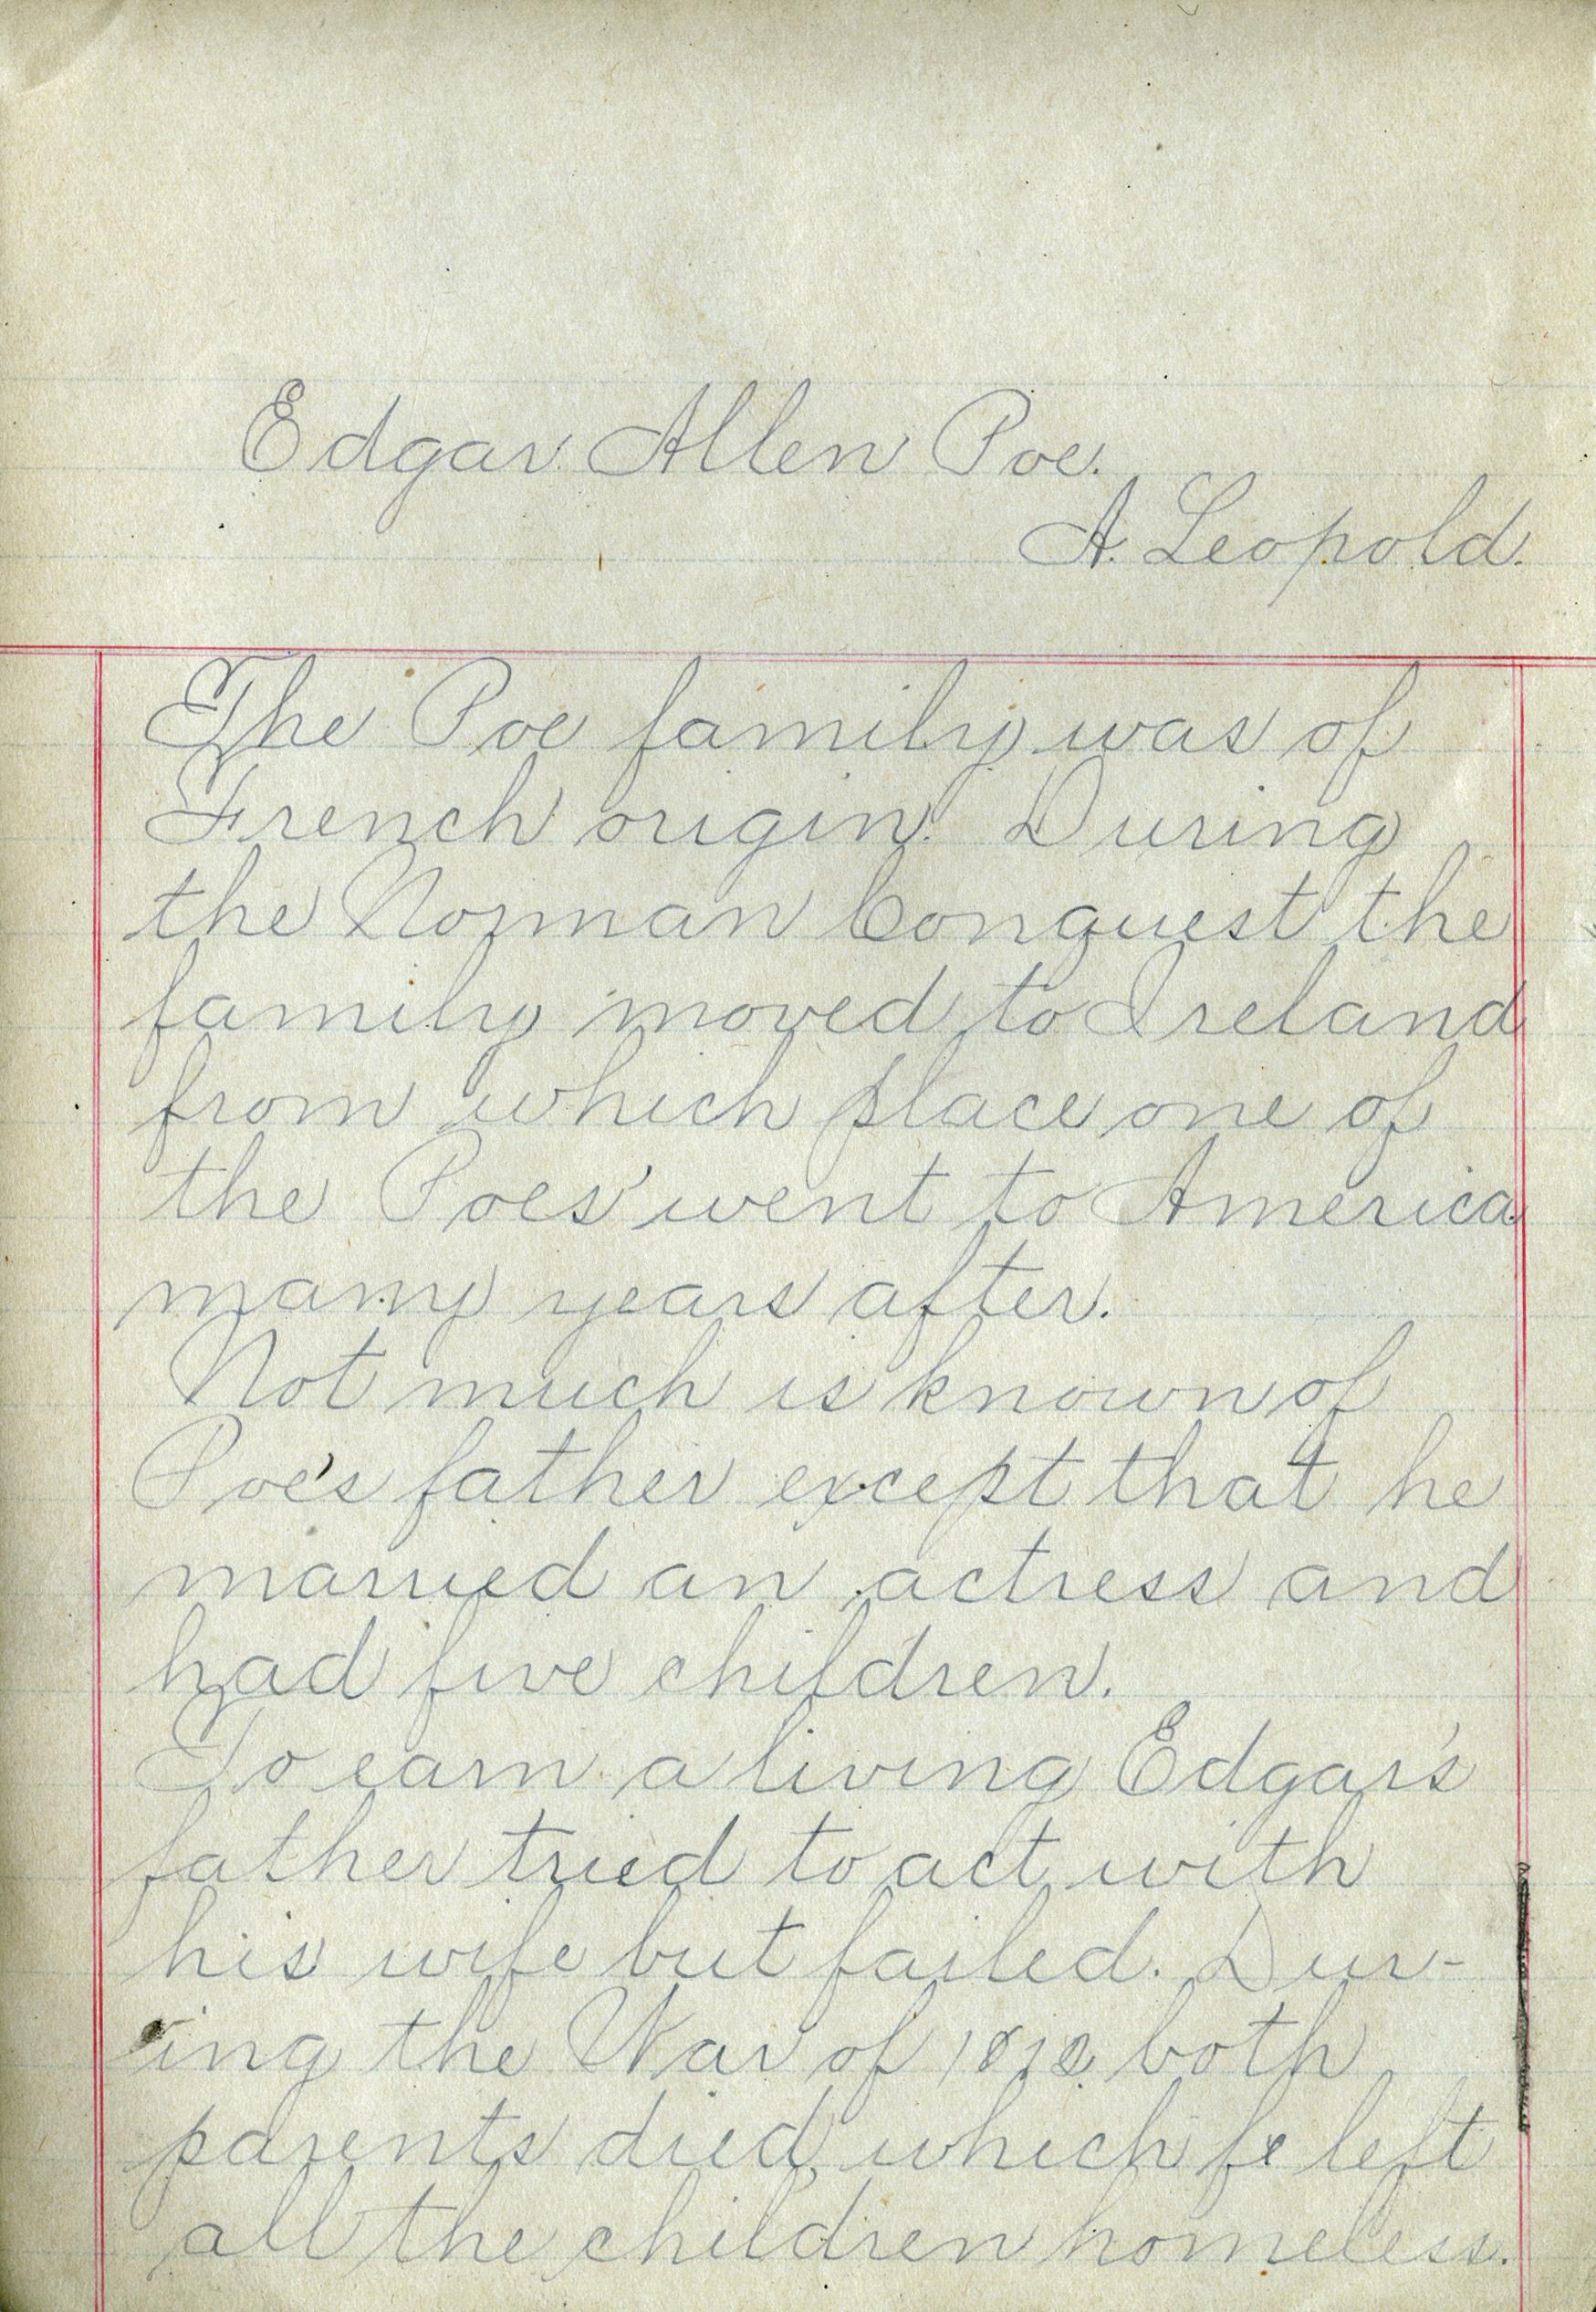 Edgar Allen Poe.
A. Leopold.
The Poe family was of
French origin. During
the Norman Conquest the
family moved to Ireland
from which place one of
the Poes went to America
many years after.
Not much is known of
Poe's father except that he
married an actress and
had five children.
To earn a living Edgar's
father tried to act with
his wife but failed. Dur-
ing the War of 1812 both
parents died, which left
all the children homeless.